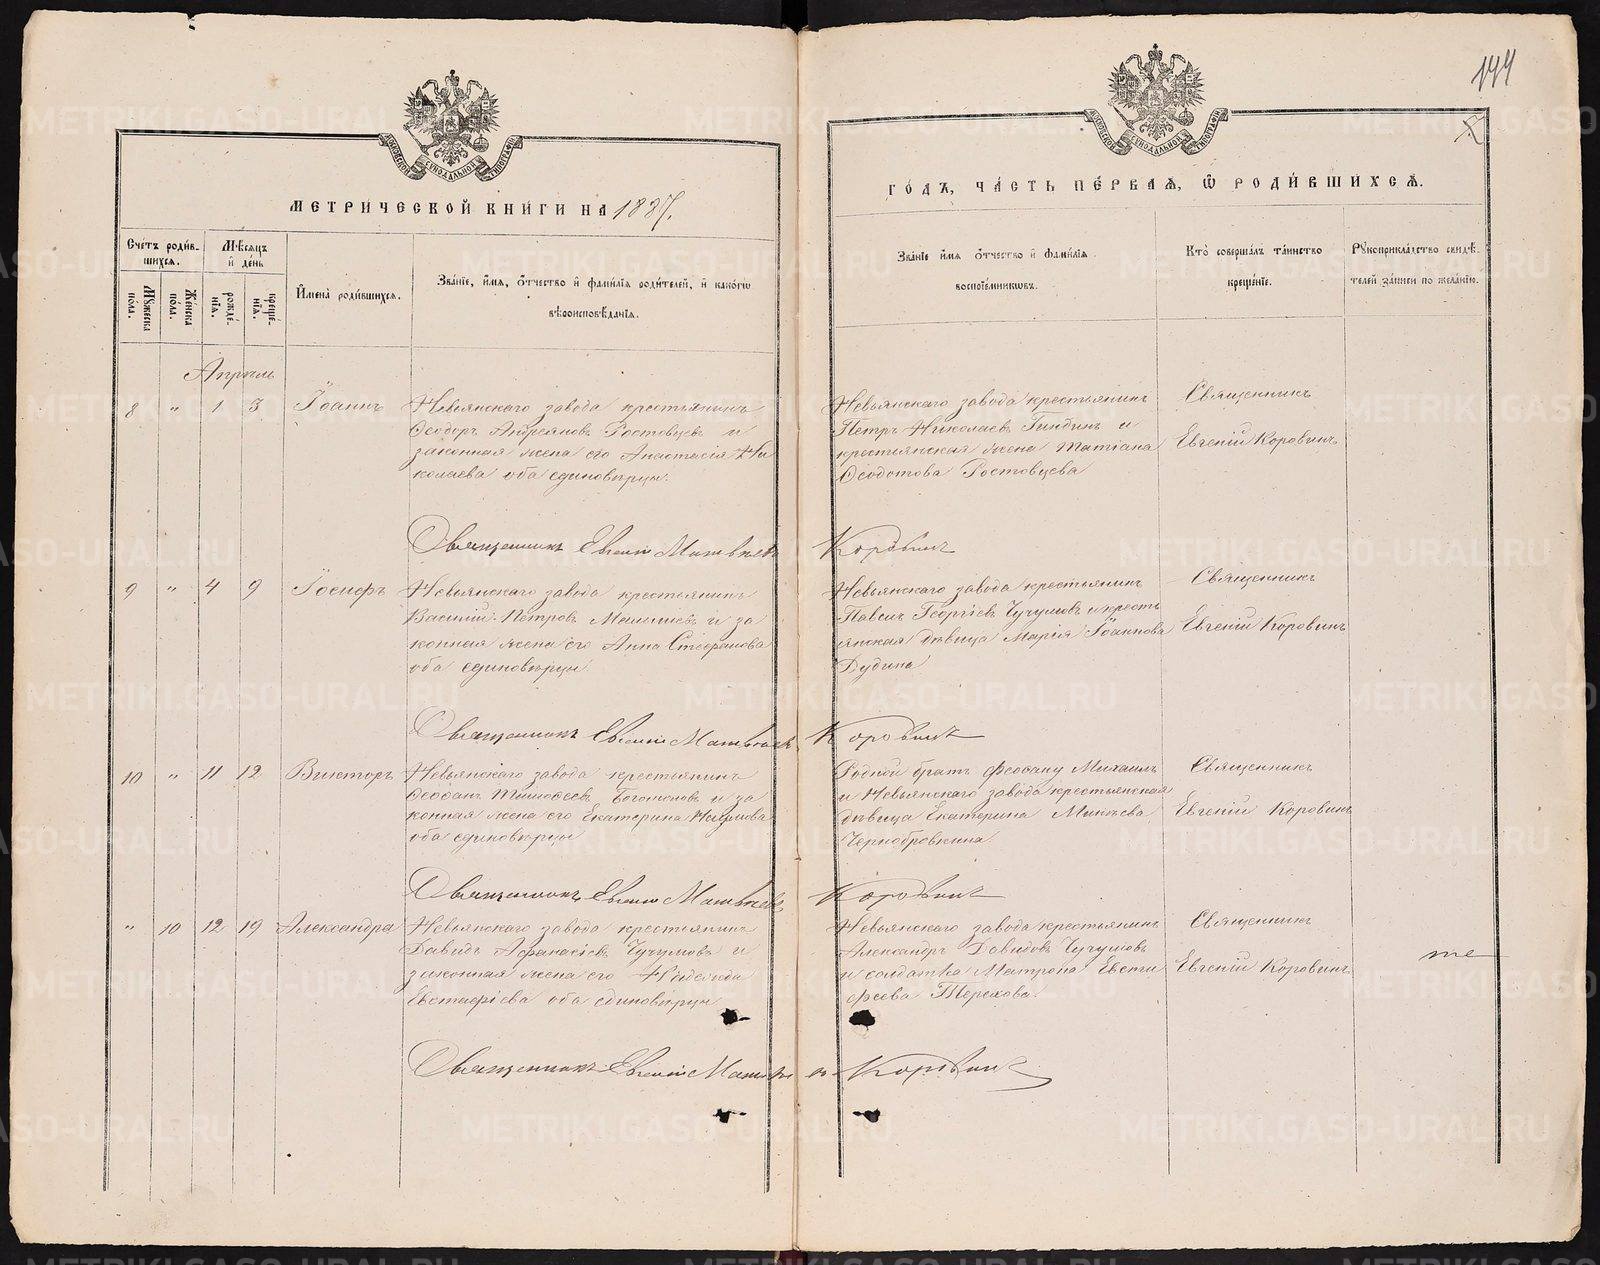 144
МОСКОВСКОЙ СѴНОДАЛЬНОЙ ТИПОГРАФІИ
МОСКОВСКОЙ СѴНОДАЛЬНОЙ ТИПОГРАФІИ
МЕТРИЧЕСКОЙ КНИГИ НА 1887.
ГОДЪ, ЧАСТЬ ПЕРВАЯ, Ѡ РОДИВШИХСЯ.
Счетъ родив-
шихся.
Мѣсяцъ
и день
Мужеска
пола.
Женска
пола.
рожде-
нія.
креще-
нія.
Имена родившихся.
Званіе, имя, отчество и фамилія родителей, и какогѡ
вѣроисповѣданія.
Званіе имя отчество и фамилія
воспоіемниковъ.
Кто совершалъ таинство
крещеніе.
Рукоприкладство свидѣ-
телей записи по желанію.
Апрѣль
8 " 1 3 Іоаннъ
Невьянскаго завода крестьянинъ
Ѳеодоръ Андреяновъ Ростовцевъ и
законная жена его Анастасія Ни
колаева оба единовѣрцы.
Невьянскаго завода крестьянинъ
Петръ Николаевъ Гиндинъ и
крестьянская жена Татіана
Ѳеодотова Ростовцева
Священникъ
Евгеній Коровинъ
Священникъ Евгеній Матвѣевъ Коровинъ
9 " 4 9 Іосифъ
Невьянскаго завода крестьянинъ
Василій Петровъ и за
конная жена его Анна Стефанова
оба единовѣрцы.
Невьянскаго завода крестьянинъ
Павелъ Георгіевъ Чучумовъ и кресть
янская дѣвица Марія Іоаннова
Дудина
Священникъ
Евгеній Коровинъ
Священникъ Евгеній Матвѣевъ Коровинъ
10 " 11 12 Викторъ
Невьянскаго завода крестьянинъ
Ѳеофанъ Тимофеевъ и за
конная жена его Екатерина Наумова
оба единовѣрцы
Родной братъ Феофану Михаилъ
и Невьянскаго завода крестьянская
дѣвица Екатерина Минѣева
Чернобровкина
Священникъ
Евгеній Коровинъ
Священникъ Евгеній Матвѣевъ Коровинъ
" 10 12 19 Александра
Невьянскаго завода крестьянинъ
Давидъ Афанасіевъ Чучумовъ и
законная жена его Надежда
Евстафіева оба единовѣрцы
Невьянскаго завода крестьянинъ
Александръ Давидовъ Чучумовъ
и солдатка Матрона Евсти
феева Терехова.
Священникъ
Евгеній Коровинъ
Священникъ Евгеній Матвѣевъ Коровинъ
METRIKI.GASO-URAL.RU